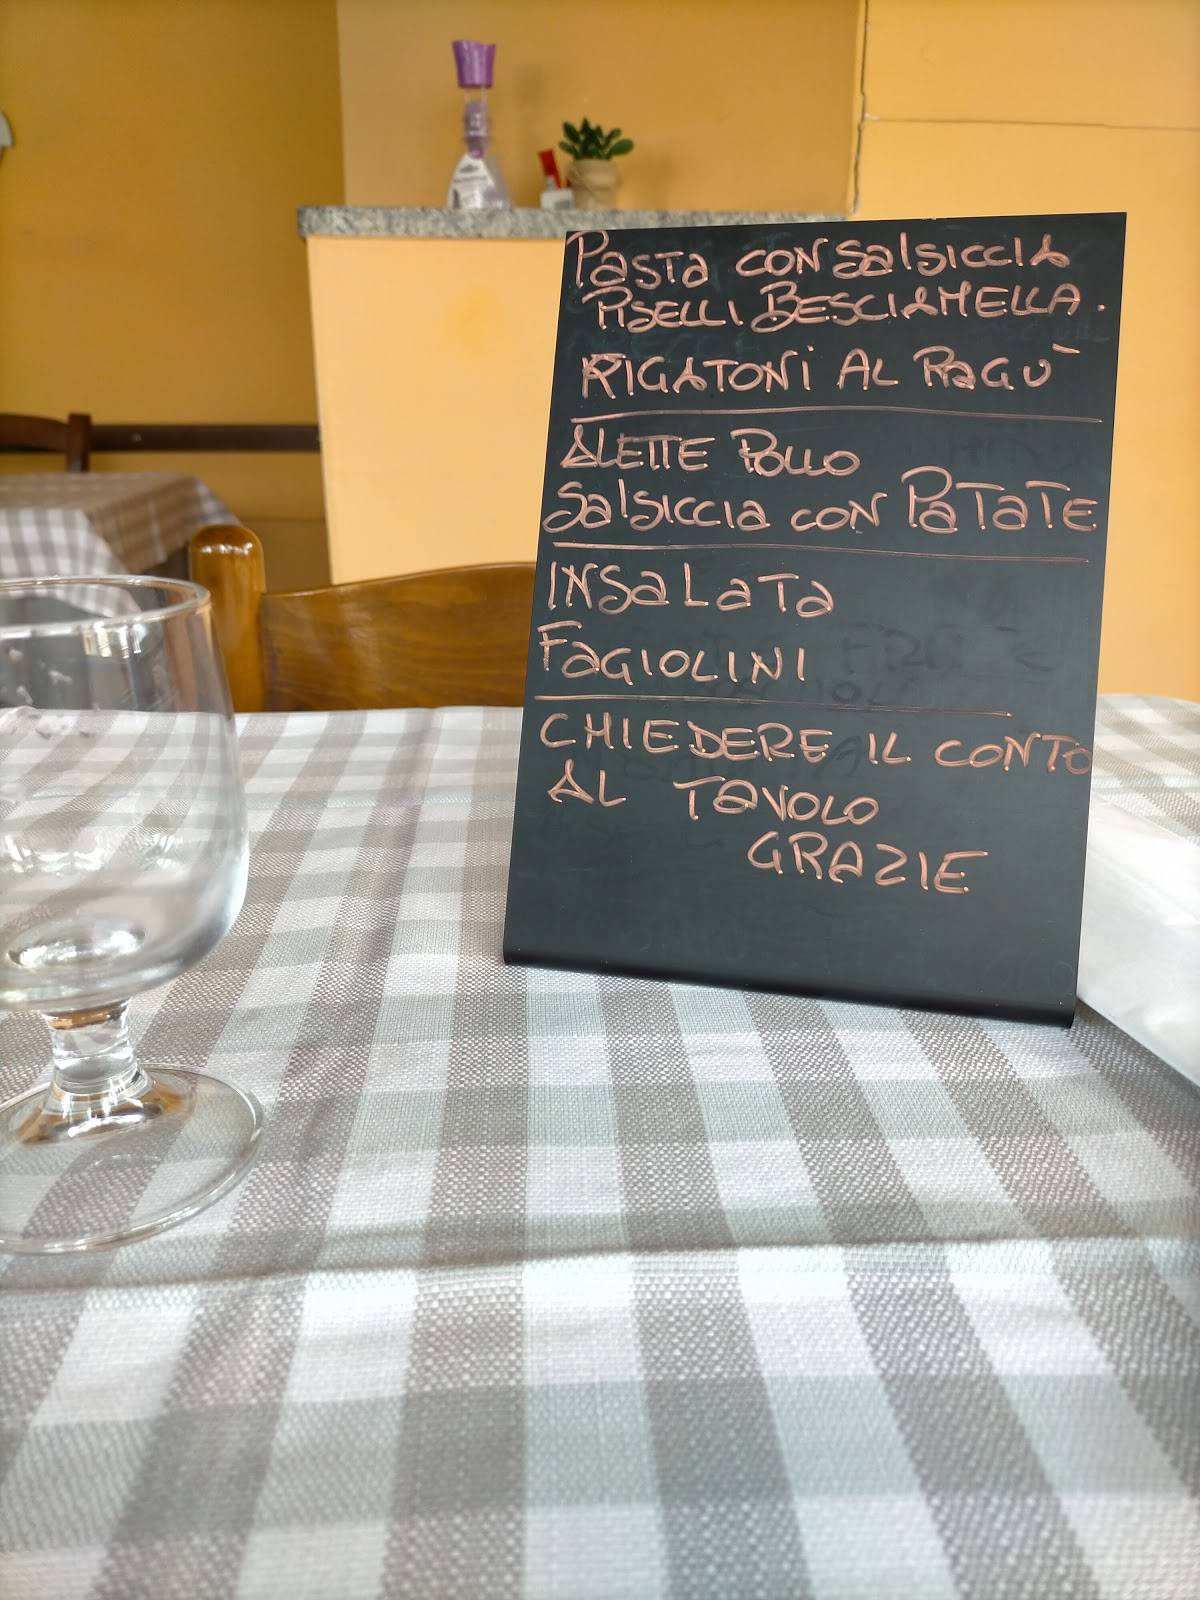 Pasta con salsiccia
Piselli Besciamella.
Rigatoni al Ragù
Alette Pollo
Salsiccia con Patate
Insalata
Fagiolini
CHIEDERE IL CONTO
AL TAVOLO
GRAZIE